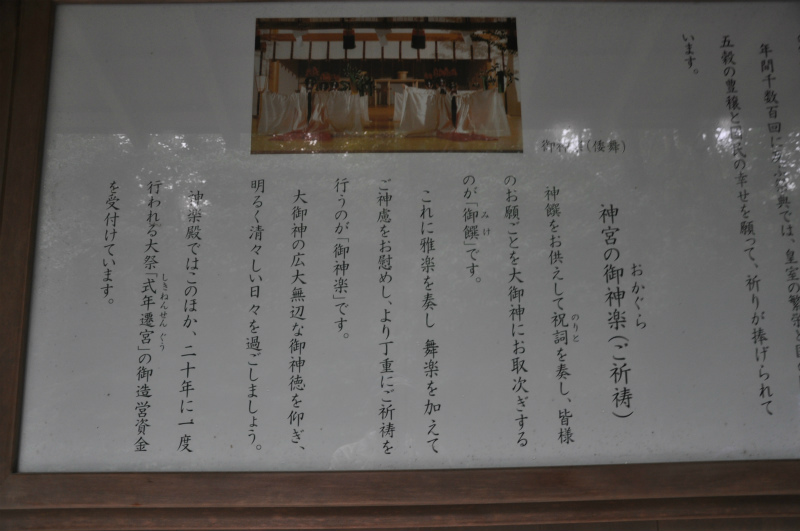 年間千数百回に
典では、皇室の繁栄と
五穀の豊穣と国民の幸せを願って、祈りが捧げられて
います。
(倭舞)
神宮の御神楽(ご祈祷)
おかぐら
神饌をお供えして祝詞を奏し、皆様
のりと
のお願ごとを大御神にお取次ぎする
のが「御饌」です。
みけ
これに雅楽を奏し 舞楽を加えて
ご神慮をお慰めし、より丁重にご祈祷を
行うのが「御神楽」です。
大御神の広大無辺な御神徳を仰ぎ、
明るく清々しい日々を過ごしましょう。
神楽殿ではこのほか、二十年に一度
行われる大祭「式年遷宮」の御造営資金
しきねんせんぐう
を受付けています。